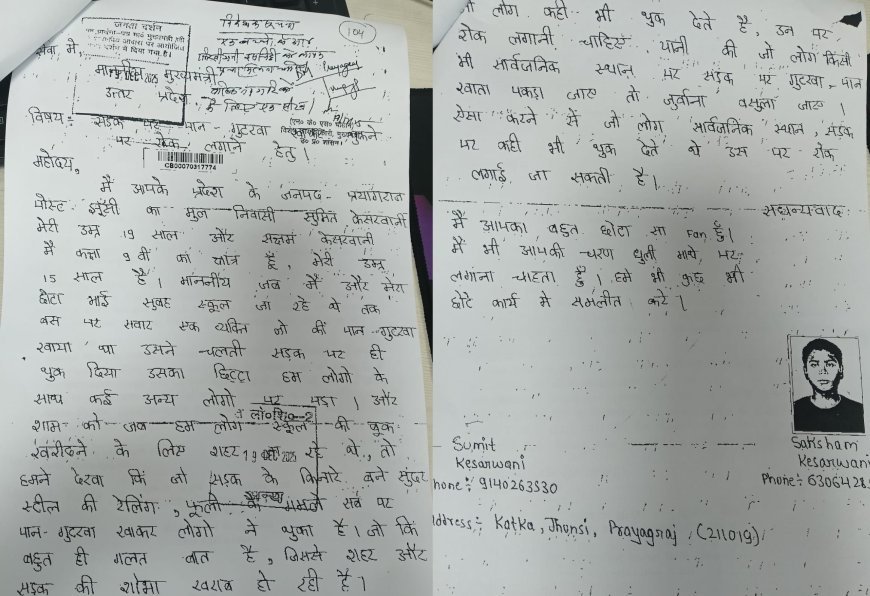 जनता दर्शन
104
सेवा में,
माननीय मुख्यमंत्री
उत्तर प्रदेश
विषय:- सड़क पर पान-गुटखा थुकने
पर रोक लगाने हेतु।
CB00070317774
महोदय,
मैं आपके प्रदेश के जनपद- प्रयागराज
पोस्ट झूँसी का मुल निवासी सुमित केसरवानी
मेरी उम्र 19 साल और सक्षम केसरवानी
मैं कक्षा 9 वीं का छात्र हूँ, मेरी उम्र
15 साल है। माननीय जब मैं और मेरा
छोटा भाई सुबह स्कूल जा रहे थे तब
बस पर सवार एक व्यक्ति जो की पान-गुटखा
खाया था उसने चलती सड़क पर ही
थुक दिया उसका छिट्टा हम लोगो के
साथ कई अन्य लोगो पर पड़ा। और
शाम को जब हम लोग स्कूल की बुक
खरीदने के लिए शहर रहे थे, तो
हमने देखा कि जो सड़क के किनारे बने सुंदर
स्टील की रेलिंग, फूलो के गमलो सब पर
पान-गुटखा खाकर लोगो ने थुका है। जो कि
बहुत ही गलत बात है, जिससे शहर और
सड़क की शोभा खराब हो रही है।
जो लोग कही भी थुक देते है, उन पर
रोक लगानी चाहिए, यानी की जो लोग किसी
भी सार्वजनिक स्थान पर सड़क पर गुटखा-पान
खाता पकड़ा जाए तो जुर्वाना वसुला जाए।
ऐसा करने से जो लोग सार्वजनिक स्थान, सड़क
पर कही भी थुक देते थे उस पर रोक
लगाई जा सकती है।
सधन्यवाद
मैं आपका बहुत छोटा सा Fan हूँ।
मैं भी आपकी चरण धुली माथे पर
लगाना चाहता हूँ। हमे भी कुछ भी
छोटे कार्य मे समलीत करे।
Sumit
Kesarwani
Phone:- 9140263530
Saksham
Kesarwani
Phone:- 6306428
Address:- Katka, Jhunsi, Prayagraj, (211019)